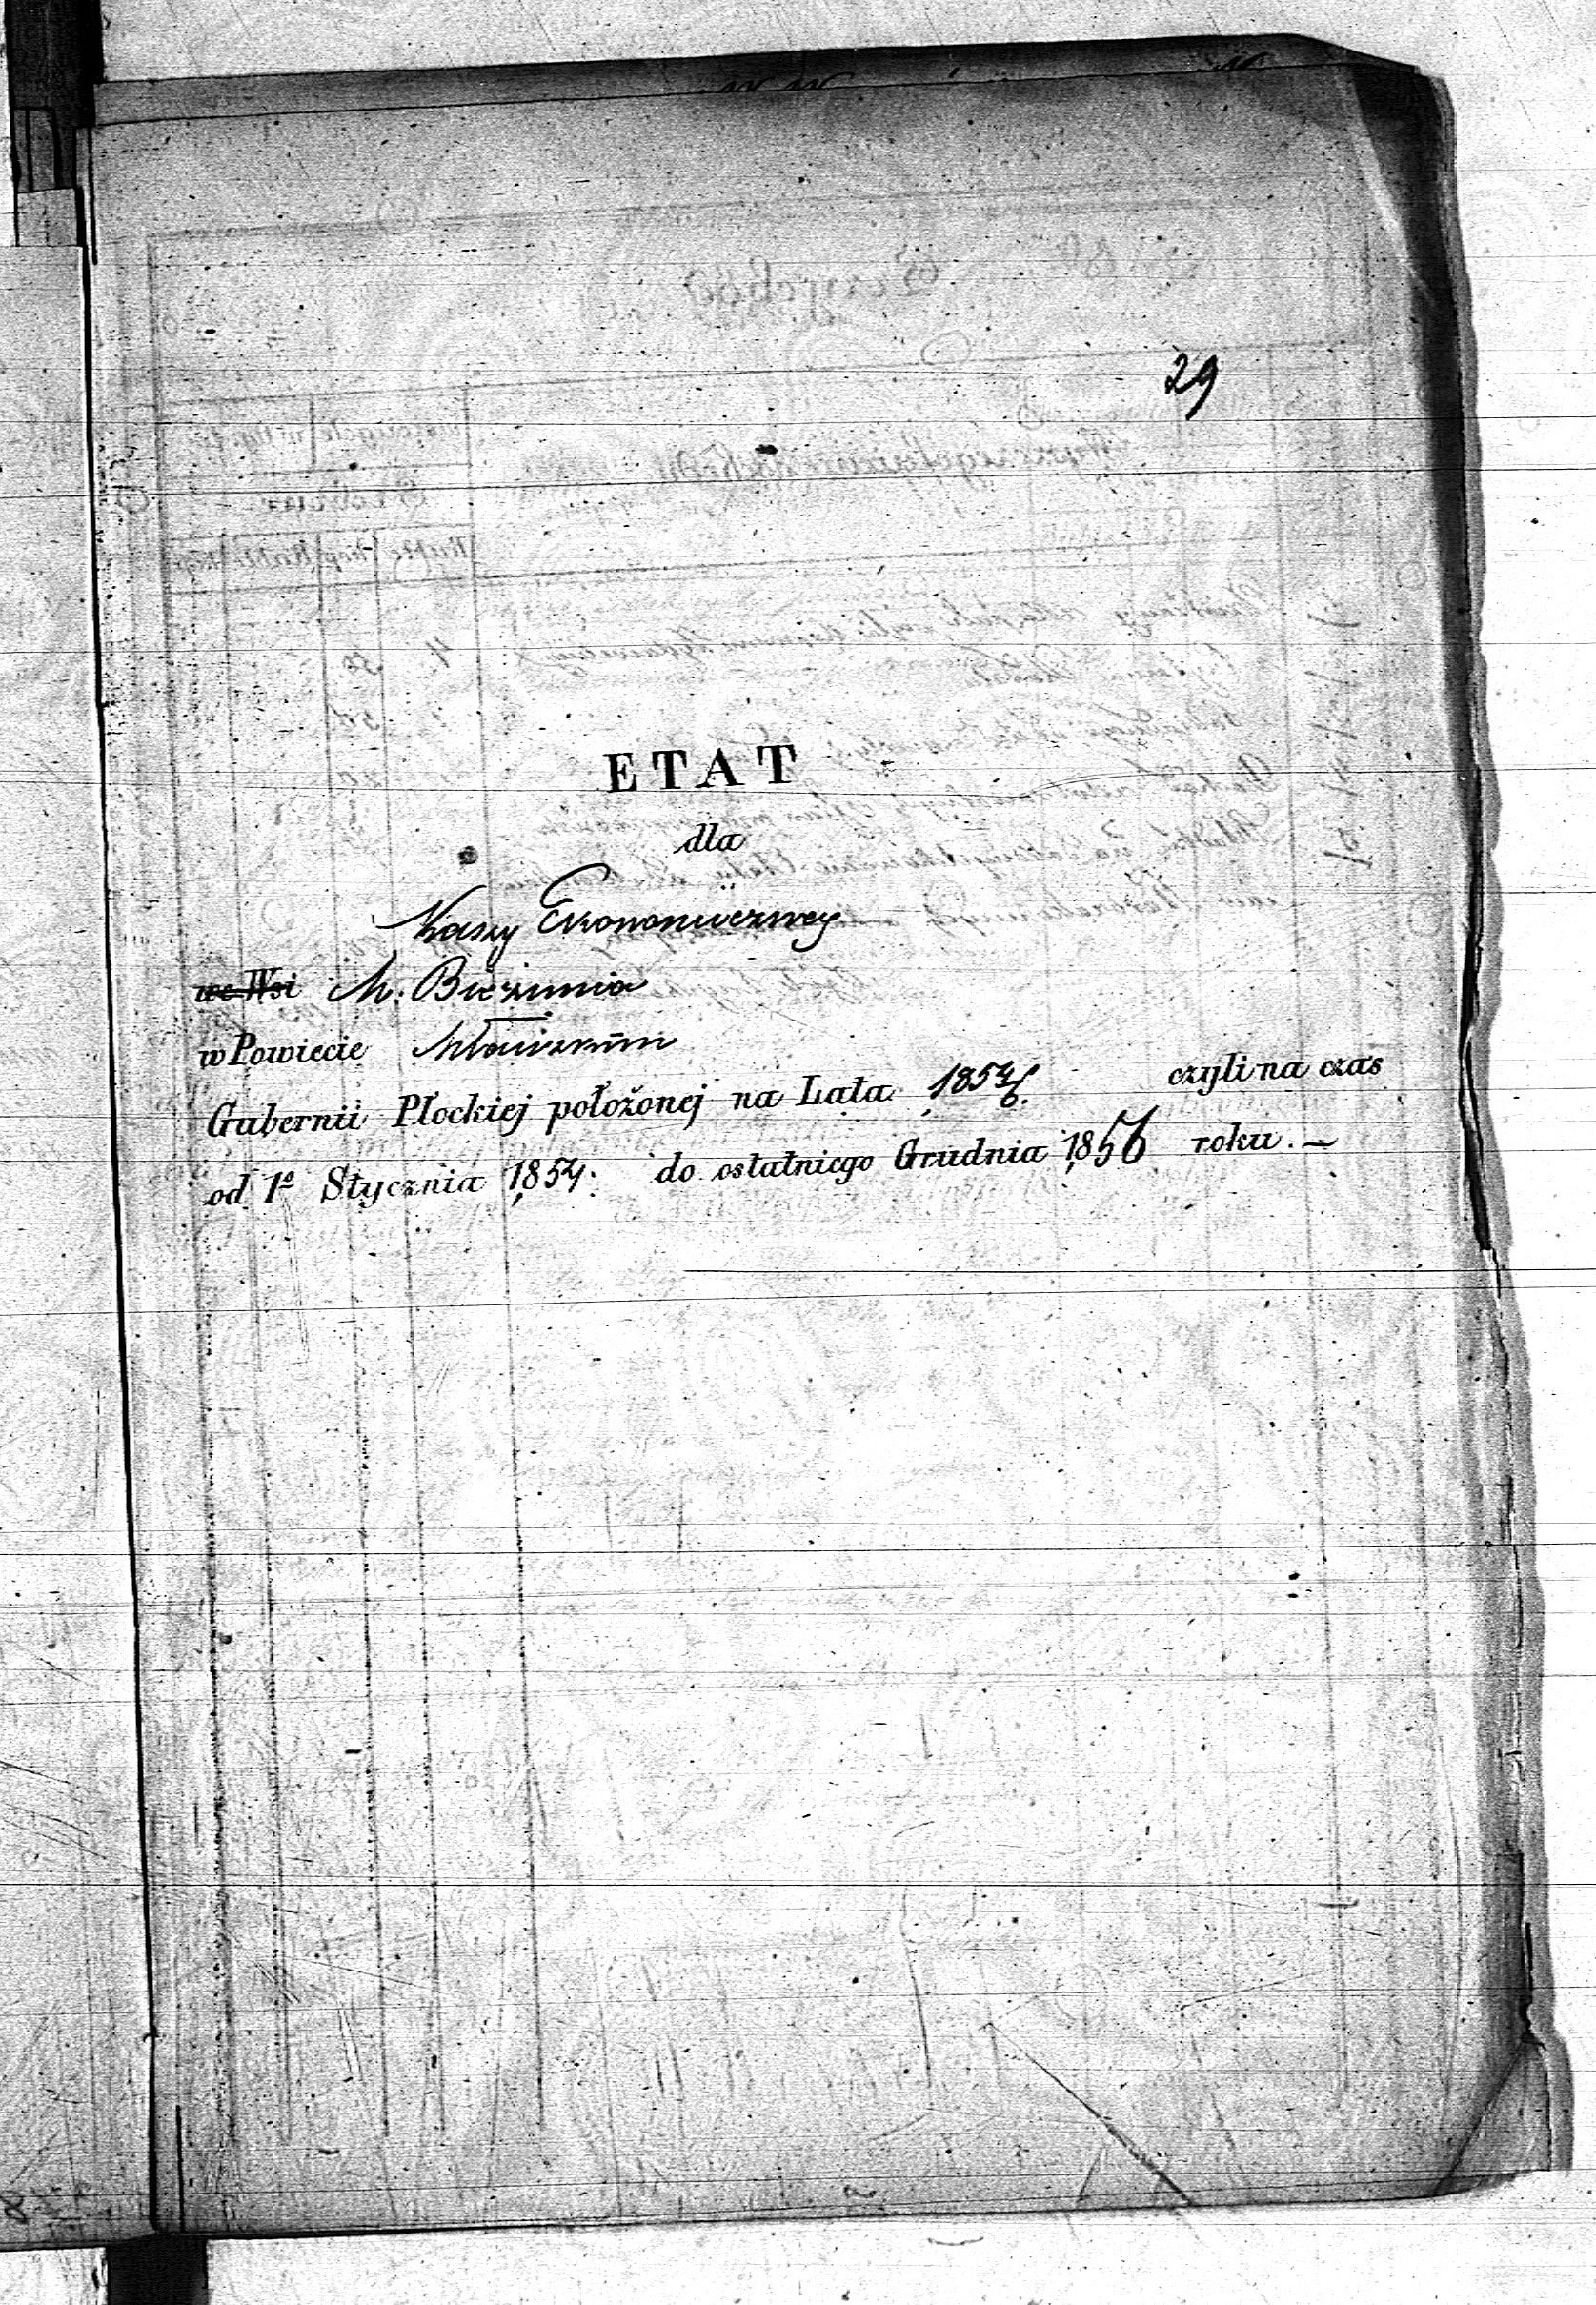 29
ETAT
dla
Kassy Ekonomiczney
we Wsi M. Bieżunia
w Powiecie Mławskim
Gubernii Płockiej położonej na Lata 1854/6. czyli na czas
od 1º Stycznia 1854. do ostatniego Grudnia 1856 roku. —